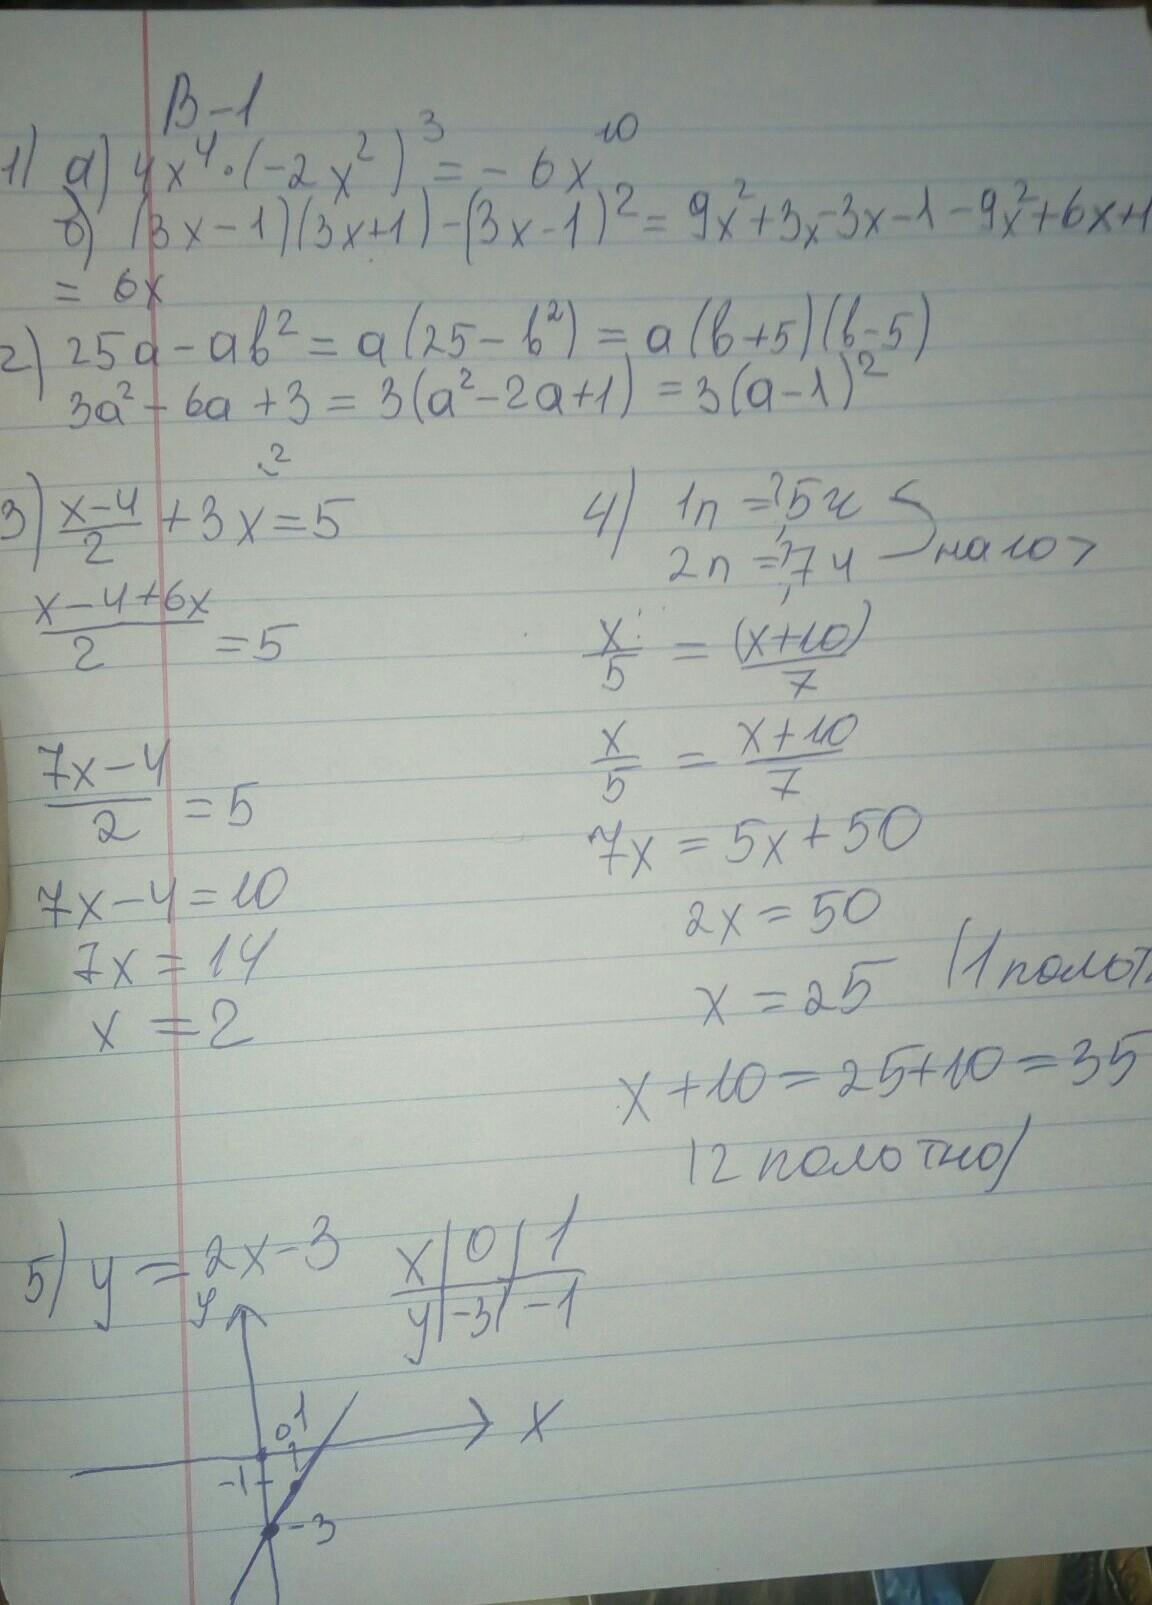 В-1
1) а) 4x⁴·(-2x²)³ = -6x¹⁰
б) (3x-1)(3x+1)-(3x-1)² = 9x²+3x-3x-1-9x²+6x+1
= 6x
2) 25a-ab² = a(25-b²) = a(b+5)(b-5)
3a²-6a+3 = 3(a²-2a+1) = 3(a-1)²
3) (x-4)/2 + 3x\² = 5
(x-4+6x)/2 = 5
(7x-4)/2 = 5
7x-4 = 10
7x = 14
x = 2
4) 1п = ?, 5ч
2п = ?, 7ч
на 10 >
x/5 = (x+10)/7
x/5 = x+10/7
7x = 5x+50
2x = 50
x = 25 (1 полот
x+10 = 25+10 = 35
(2 полотно)
5) y = 2x-3
x | 0 | 1
y | -3 | -1
y
0 1
x
-1
-3